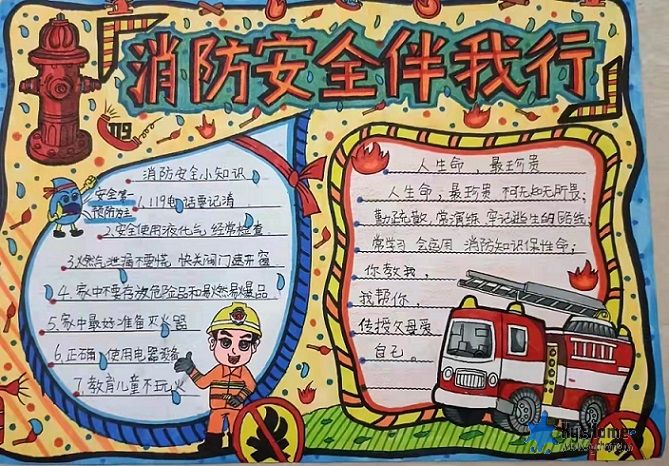 消防安全伴我行
119
安全第一
预防为主
消防安全小知识
1.119电话要记清
2.安全使用液化气,经常检查
3.燃气泄漏不要慌 快关阀门速开窗
4.家中不要存放危险品和易燃易爆品
5.家中最好准备灭火器
6.正确使用电器设备
7.教育儿童不玩火
人生命,最珍贵
人生命,最珍贵 不可无知无所畏;
勤疏散,常演练 牢记逃生的路线;
常学习 会运用 消防知识保性命;
你教我,
我帮你,
传授父母爱
自己。